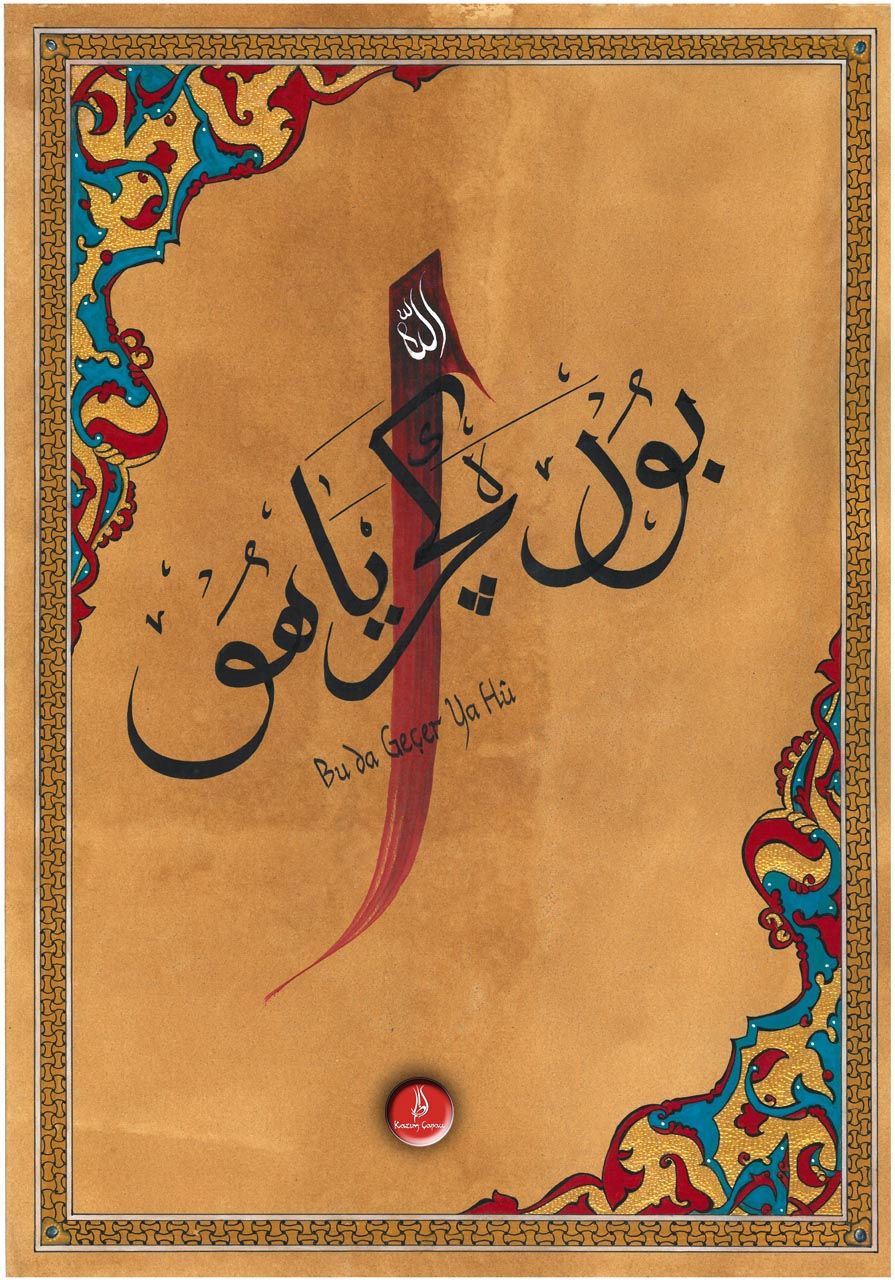 الله
بو ده كچر يا هو
Bu da Geçer Ya Hû
Kazım